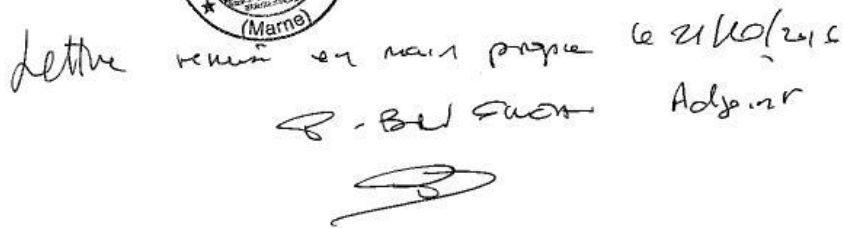 (Marne)
Lettre remise en main propre le 21/10/2016
Adjoint